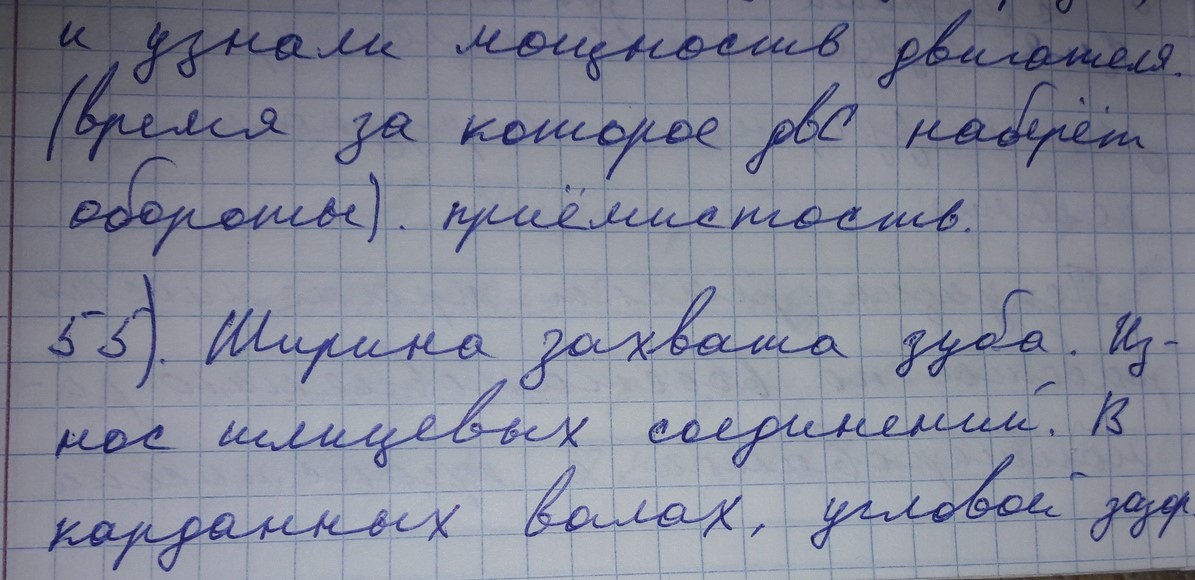 и узнали мощность двигателя.
(время за которое двС наберёт
обороты). приёмистость.
55). Ширина захвата зуба. Из-
нос шлицевых соединений. В
карданных валах, угловой зазор.